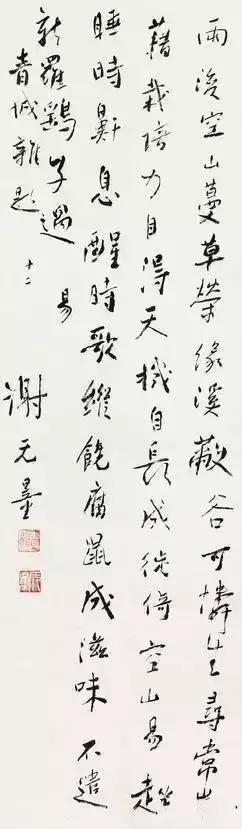 雨後空山蔓草榮緣溪蔽谷可憐生尋常不
藉栽培力自得天機自長成徙倚空山易趖
睡時鼾息醒時歌縱饒腐鼠成滋味不遣
新羅鷂子過 易
青城雜題 十二
謝无量